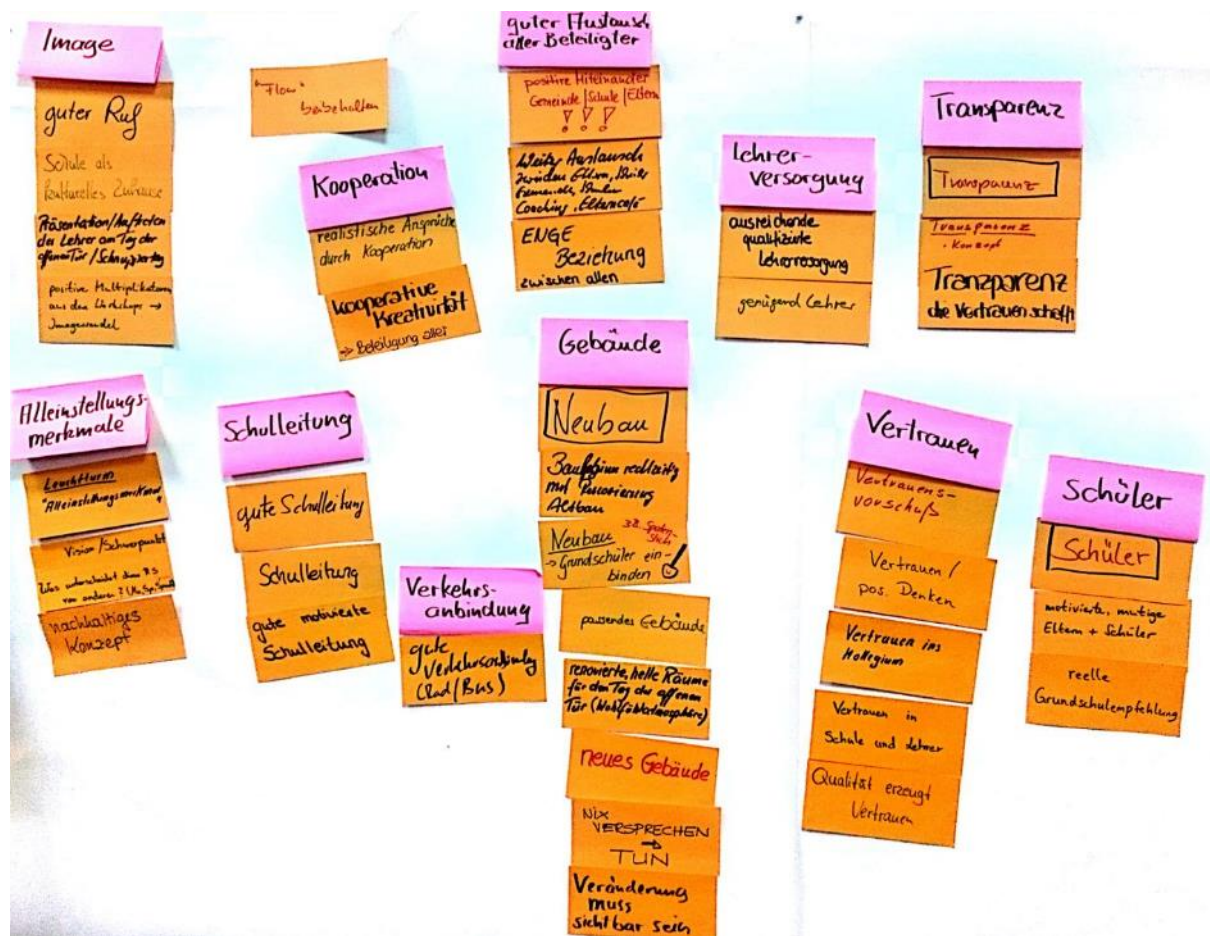 Image
guter Ruf
Schule als
kulturelles Zuhause
Präsentation/Auftreten
der Lehrer am Tag der
offenen Tür/Schnuppertag
positive Multiplikatoren
aus den Workshops →
Imagewandel
"Flow"
beibehalten
Kooperation
realistische Ansprüche
durch Kooperation
kooperative
Kreativität
→ Beteiligung aller
guter Austausch
aller Beteiligter
positive Miteinander
Gemeinde | Schule | Eltern
! ! !
Austausch
zwischen Eltern,
Coaching, Elterncafé
ENGE
Beziehung
zwischen allen
Lehrer-
versorgung
ausreichende
qualifizierte
Lehrerversorgung
genügend Lehrer
Transparenz
Transparenz
Transparenz
• Konzept
Tranzparenz
die Vertrauen schafft
Alleinstellungs-
merkmale
Leuchtturm
"Alleinstellungsmerkmal"
Vision/Schwerpunkt
Was unterscheidet diese RS
von anderen?
nachhaltiges
Konzept
Schulleitung
gute Schulleitung
Schulleitung
gute motivierte
Schulleitung
Verkehrs-
anbindung
gute
Verkehrsanbindung
(Rad/Bus)
Gebäude
Neubau
Baubeginn rechtzeitig
mit Renovierung
Altbau
Neubau z.B. Spaten-
stich
→ Grundschüler ein-
binden
passendes Gebäude
renovierte, helle Räume
für den Tag der offenen
Tür (Wohlfühlatmosphäre)
neues Gebäude
NIX
VERSPRECHEN
→
TUN
Veränderung
muss
sichtbar sein
Vertrauen
Vertrauens-
vorschuß
Vertrauen /
pos. Denken
Vertrauen ins
Kollegium
Vertrauen in
Schule und Lehrer
Qualität erzeugt
Vertrauen
Schüler
Schüler
motivierte, mutige
Eltern + Schüler
reelle
Grundschulempfehlung